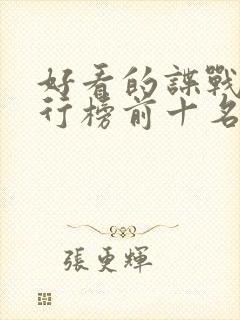 好看的諜戰
行榜前十名
張更輝